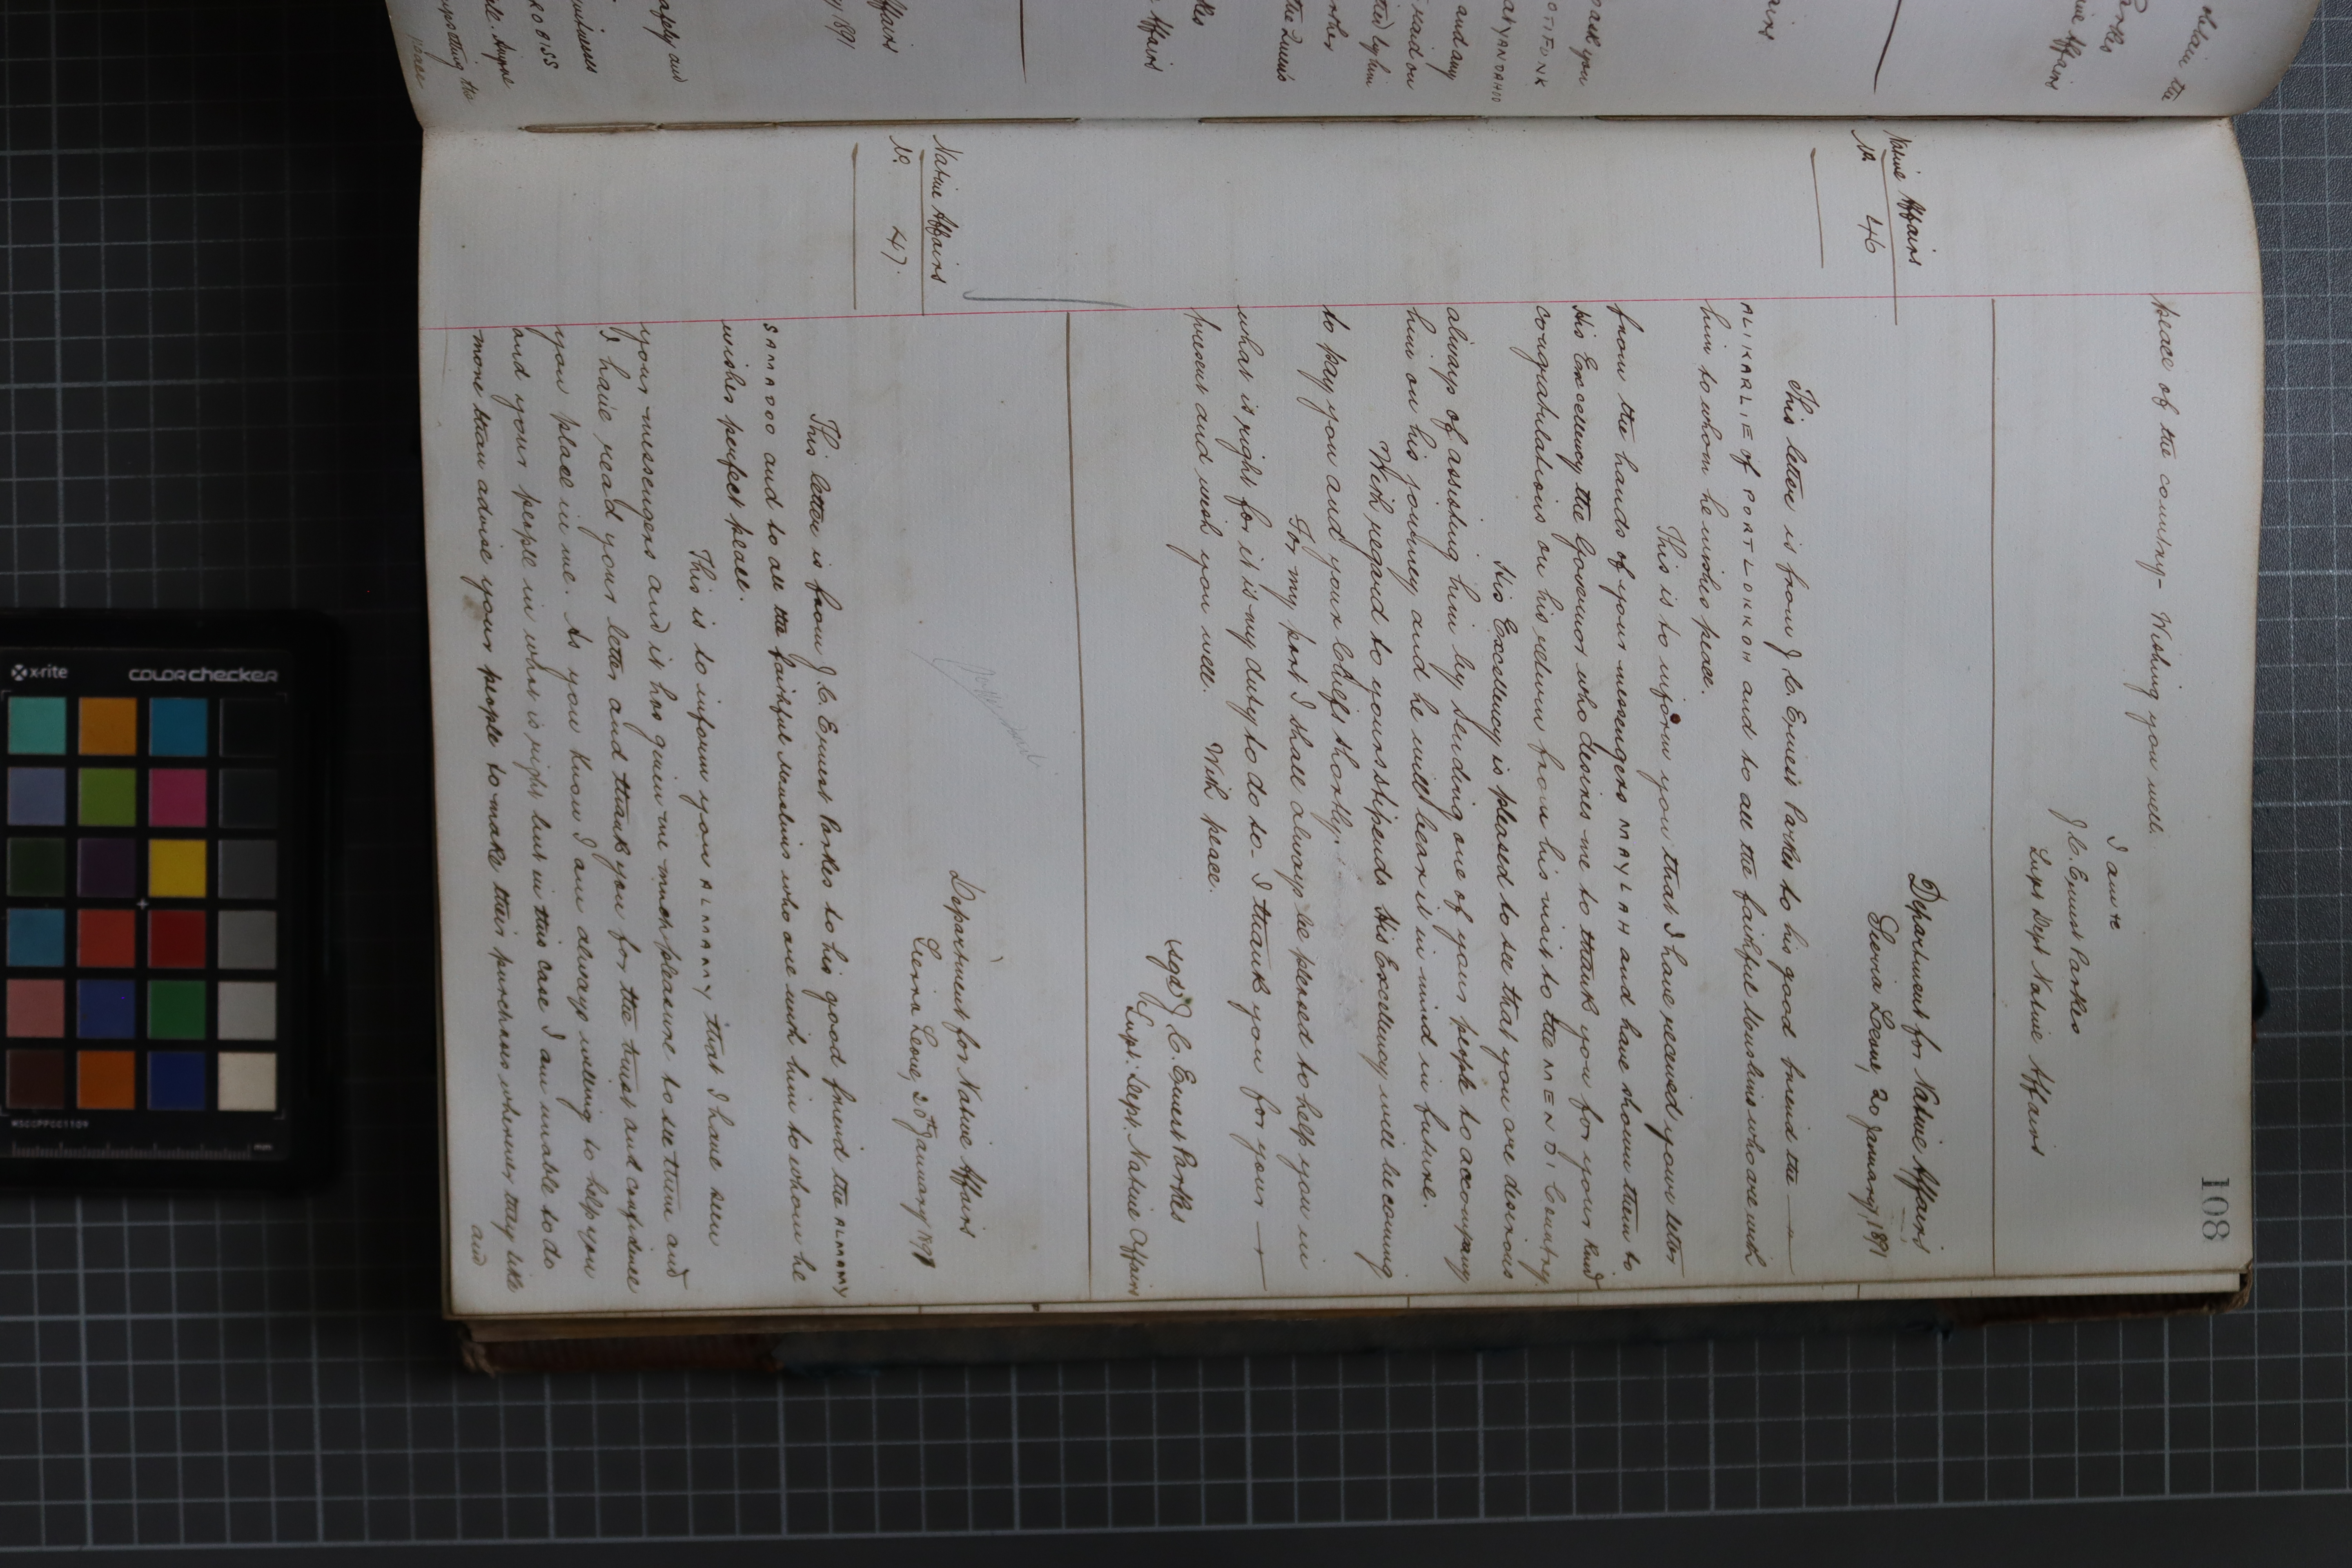 108
peace of the country - Wishing you well.
I am &c
J. C. Ernest Parkes
Supt Dept Native Affairs
Native Affairs
No. 46
Department for Native Affairs
Sierra Leone, 20 January, 1891
This letter is from J. C. Ernest Parkes to his good friend the
ALIKARLIE of PORT LOKKOH and to all the faithful Muslims who are with
him to whom he wishes peace.
This is to inform you that I have received your letter
from the hands of your messengers MAYLAH and have shown them to
His Excellency the Governor who desires me to thank you for your kind
congratulations on his return from his visit to the MENDI Country.
His Excellency is pleased to see that you are desirous
always of assisting him by sending one of your people to accompany
him on his journey and he will bear it in mind in future.
With regard to your stipends His Excellency will be coming
to pay you and your Chiefs shortly.
For my part I shall always be pleased to help you in
what is right for it is my duty to do so - I thank you for your
present and wish you well. With peace.
(sgd) J. C. Ernest Parkes
Supt. Dept. Native Affairs
Native Affairs
No. 47.
Department for Native Affairs
Sierra Leone, 20th January 1891
This letter is from J. C. Ernest Parkes to his good friend the ALMAMY
SAMADOO and to all the faithful Muslims who are with him to whom he
wishes perfect peace.
This is to inform you ALMAMY that I have seen
your messengers and it has given me much pleasure to see them and
I have read your letter and thank you for the trust and confidence
you place in me. As you know I am always willing to help you
and your people in what is right but in this case I am unable to do
more than advise your people to make their purchases wherever they like
and
obtain the
Parkes
Affairs
pack you
and any
said on
by him
the Queen's
Affairs
Affairs
1891
apply and
BISS
supporting the
peace
x-rite
colorchecker
MSCCPPCC1109
mm